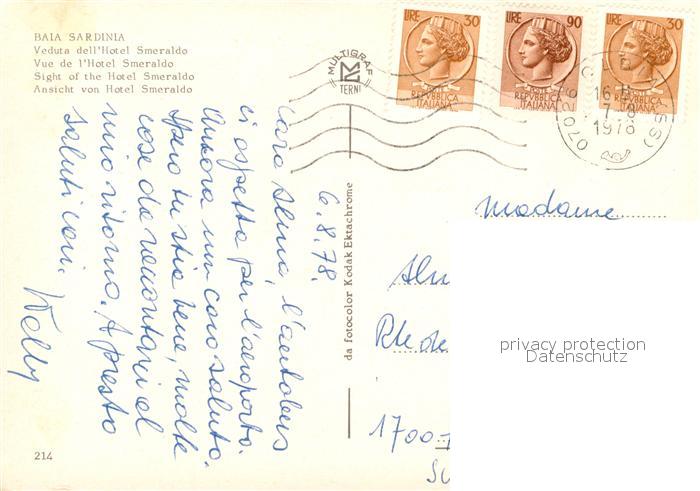 BAIA SARDINIA
Veduta dell'Hotel Smeraldo
Vue de l'Hotel Smeraldo
Sight of the Hotel Smeraldo
Ansicht von Hotel Smeraldo
MULTIGRAF
TERNI
LIRE 30
REPUBBLICA
ITALIANA
LIRE 90
REPUBBLICA
ITALIANA
LIRE 30
REPUBBLICA
ITALIANA
07026
(SS)
1978
6.8.78.
cara Alma, l'autobus
ci aspetta per l'aeroporto.
Ancora un caro saluto.
Spero tu stia bene, molte
cose da raccontarci al
mio ritorno. A presto
saluti cari.
da fotocolor Kodak Ektachrome
Madame
Alm
Rte de
1700
privacy protection
Datenschutz
214